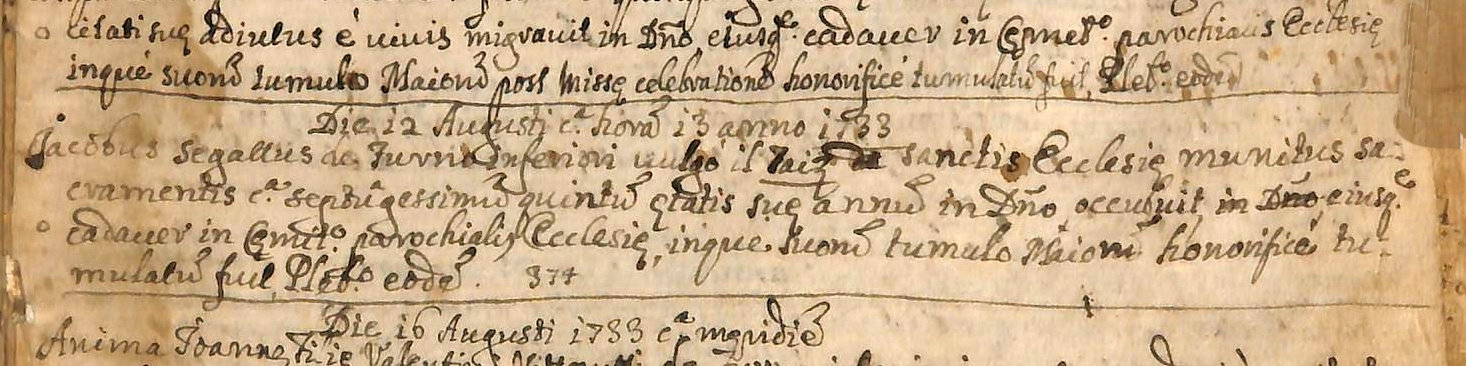 etati suę adiutus é vivis migravit in Dño, eiusq.e cadaver in Cęmet.o parochialis Ecclesię
inque suorũ tumulo Maiorũ post Missę celebrationẽ honorificé tumulatũ fuit, Pleb.o eodẽ
Die 12 Augusti c.a horã 13 anno 1733
Jacobus Segallus de Turno inferiori vulgo il Zaiz sanctis Ecclesię munitus sa-
cramentis c.a septũgessimũ quintũ ętatis suę annũ in Dño occubuit in Dño eiusq.e
cadaver in Cęmit.o parochialis Ecclesię, inque suorũ tumulo Maiorũ honorificé tu-
mulatũ fuit, Pleb.o eodẽ. 374
Die 16 Augusti 1733 c.a męridiẽ
Anima Joannę Filię